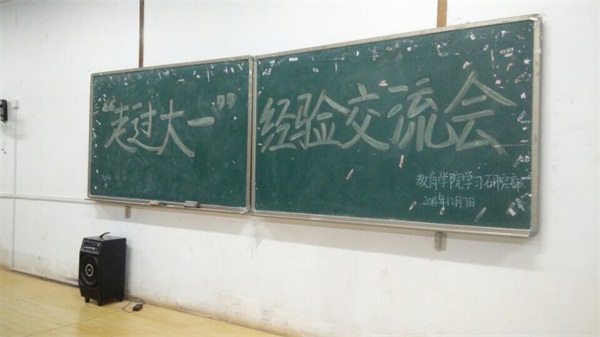 “走过大一”经验交流会
教育学院学习研究部
2014年12月7日